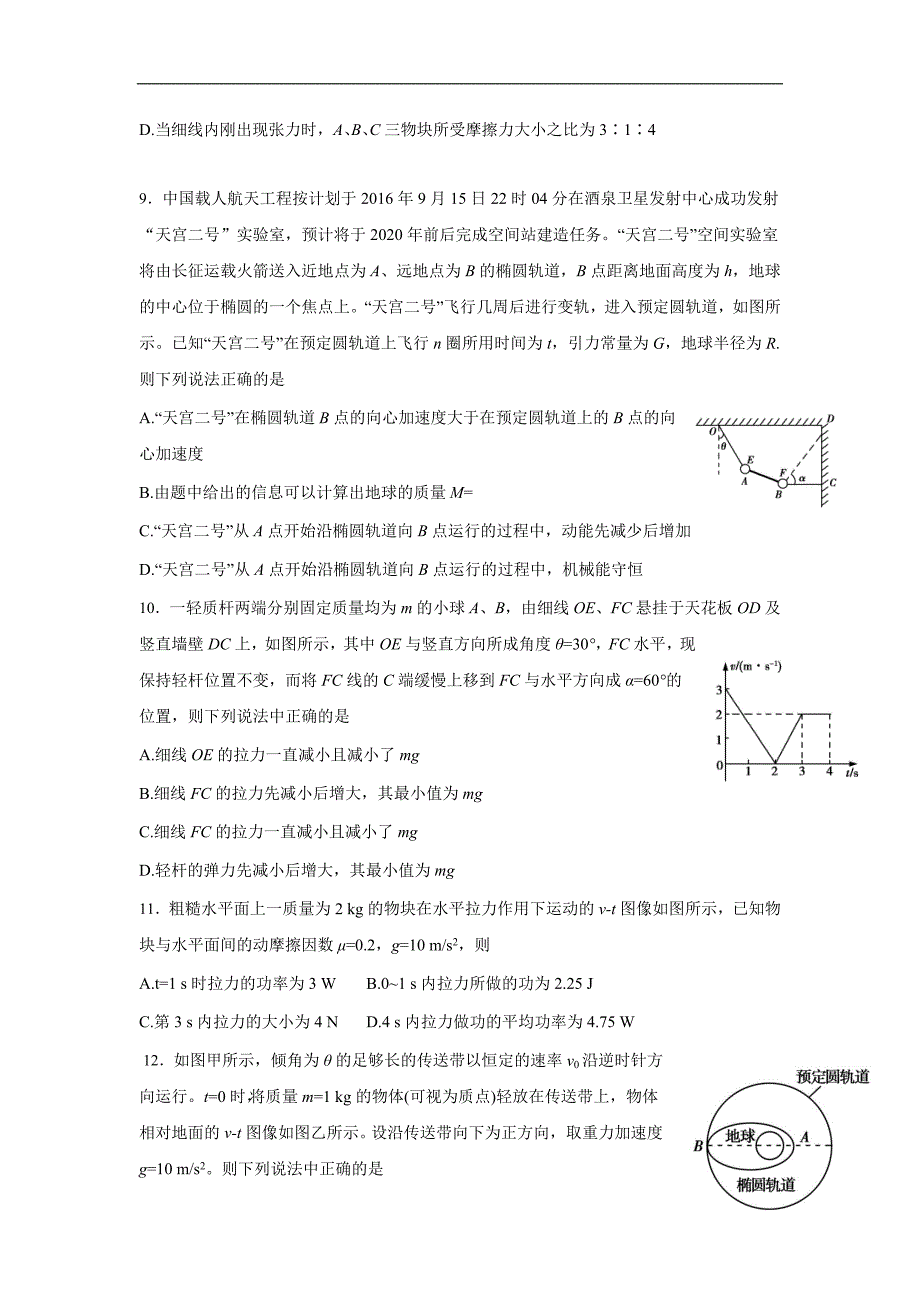 D.当细线内刚出现张力时，A、B、C三物块所受摩擦力大小之比为3∶1∶4
9．中国载人航天工程按计划于2016年9月15日22时04分在酒泉卫星发射中心成功发射
“天宫二号”实验室，预计将于2020年前后完成空间站建造任务。“天宫二号”空间实验室
将由长征运载火箭送入近地点为A、远地点为B的椭圆轨道，B点距离地面高度为h，地球
的中心位于椭圆的一个焦点上。“天宫二号”飞行几周后进行变轨，进入预定圆轨道，如图所
示。已知“天宫二号”在预定圆轨道上飞行n圈所用时间为t，引力常量为G，地球半径为R.
则下列说法正确的是
A.“天宫二号”在椭圆轨道B点的向心加速度大于在预定圆轨道上的B点的向
心加速度
B.由题中给出的信息可以计算出地球的质量M=
C.“天宫二号”从A点开始沿椭圆轨道向B点运行的过程中，动能先减少后增加
D.“天宫二号”从A点开始沿椭圆轨道向B点运行的过程中，机械能守恒
O
D
θ
E
A
F
B
α
C
10．一轻质杆两端分别固定质量均为m的小球A、B，由细线OE、FC悬挂于天花板OD及
竖直墙壁DC上，如图所示，其中OE与竖直方向所成角度θ=30°，FC水平，现
保持轻杆位置不变，而将FC线的C端缓慢上移到FC与水平方向成α=60°的
位置，则下列说法中正确的是
A.细线OE的拉力一直减小且减小了mg
B.细线FC的拉力先减小后增大，其最小值为mg
C.细线FC的拉力一直减小且减小了mg
D.轻杆的弹力先减小后增大，其最小值为mg
v/(m·s⁻¹)
3
2
1
0
1 2 3 4 t/s
11．粗糙水平面上一质量为2 kg的物块在水平拉力作用下运动的v-t图像如图所示，已知物
块与水平面间的动摩擦因数μ=0.2，g=10 m/s²，则
A.t=1 s时拉力的功率为3 W B.0~1 s内拉力所做的功为2.25 J
C.第3 s内拉力的大小为4 N D.4 s内拉力做功的平均功率为4.75 W
12．如图甲所示，倾角为θ的足够长的传送带以恒定的速率v₀沿逆时针方
向运行。t=0时,将质量m=1 kg的物体(可视为质点)轻放在传送带上，物体
相对地面的v-t图像如图乙所示。设沿传送带向下为正方向，取重力加速度
g=10 m/s²。则下列说法中正确的是
预定圆轨道
地球
A
B
椭圆轨道